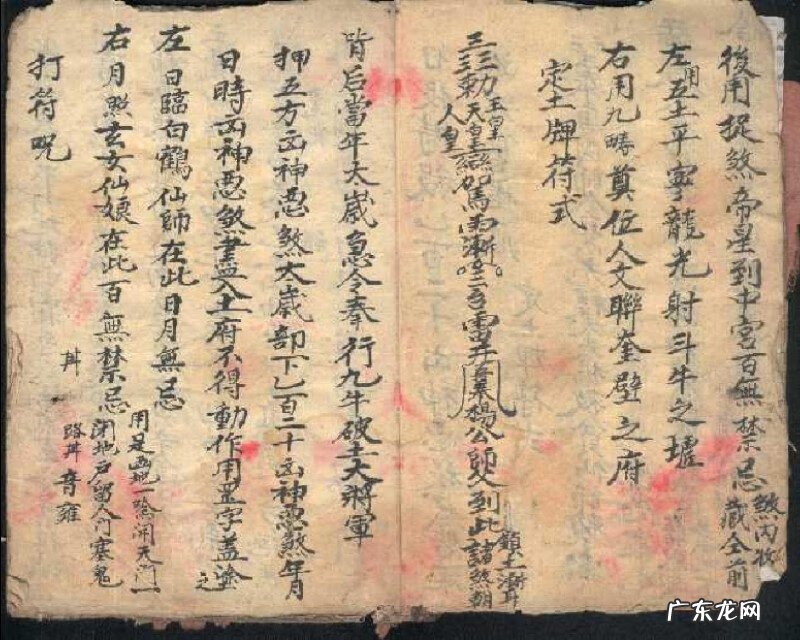 後用捉煞帝星到中宮百無禁忌 煞內收藏全前
左用五土平寧龍光射斗牛之墟
右用九疇奠位人文聯奎壁之府
定土牌符式
勅 玉皇 天皇 人皇 楊公 到此諸煞朝
背后當年大歲急令奉行九牛破土大將軍
押五方凶神惡煞大歲部下乙百二十凶神惡煞年月
日時凶神惡煞盡入土府不得動作用罡字蓋塗之
左日臨白鶴仙師在此日月無忌
右月照玄女仙娘在此百無禁忌
用是 一 開天門一
閉地戶留人門塞鬼
路
打符咒
广东龙网